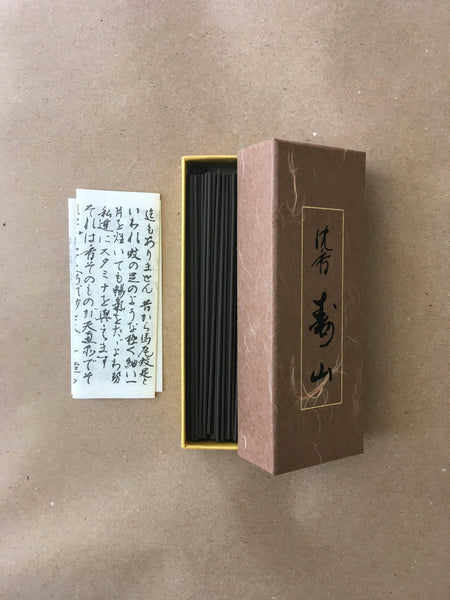 迄もありません 昔から馬尾蚊足と
いわれ蚊の足のような極く細い一
片を炷いても暢氣をたゞよわ
私達にスタミナを与えます
それは香そのものが天でそ
沈香
寿山